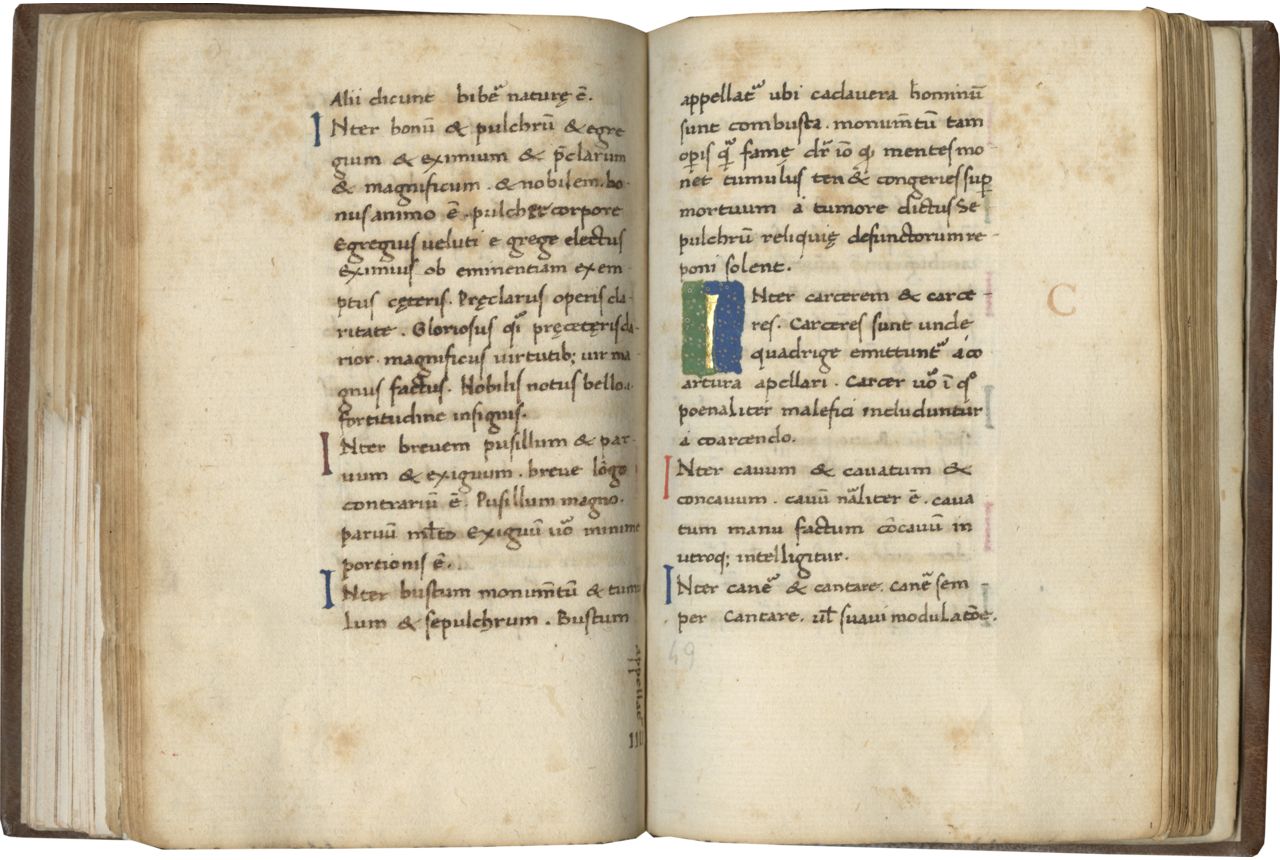 Alii dicunt bibẽ naturę ẽ.
INter bonũ & pulchrũ & egre
gium & eximium & p̃clarum
& magnificum . & nobilem . bo-
nus animo ẽ . pulcher corpore
Egregius ueluti e grege electus
Eximius ob eminentiam exem-
ptus cęteris. Pręclarus operis cla-
ritate . Gloriosus qi̾ pręceteris cla-
rior . magnificus uirtutib; uir ma
gnus factus. Nobilis notus bello.
fortitudine insignis.
INter brevem pusillum & par-
uum & exiguum . breue lõgo
contrariũ ẽ. Pusillum magno.
paruũ ml̃to Exiguũ uõ minime
portionis ẽ.
INter bustum monum̃tũ & tum
lum & sepulchrum . Bustum
appellat
III
appellat᷑ ubi cadauera hominũ
sunt combusta . monum̃tũ tam
opis q̃ famę dr̃ iõ q; mentes mo-
net tumulus ten& congeries sup
mortuum á tumore dictus Se
pulchrũ reliquię defunctorum re-
poni solent.
INter carcerem & carce-
res. Carceres sunt unde
quadrige emittunt᷑ áco
artura apellari . Carcer uõ ĩ qõ
poenaliter malefici includuntur
á coarcendo.
C
INter cauum & cauatum &
concauum . cauũ nãliter ẽ . caua
tum manu factum cõcauũ in
utroq; intelligitur.
INter canẽ & cantare . canẽ sem-
per Cantare . ul̃ suaui modulatõe.
49